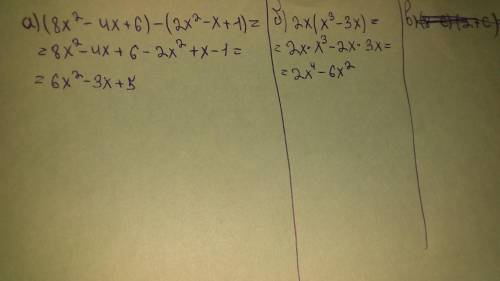 а) (8x² - 4x + 6) - (2x² - x + 1) =
= 8x² - 4x + 6 - 2x² + x - 1 =
= 6x² - 3x + 5
б) 2x(x³ - 3x) =
= 2x · x³ - 2x · 3x =
= 2x⁴ - 6x²
в)